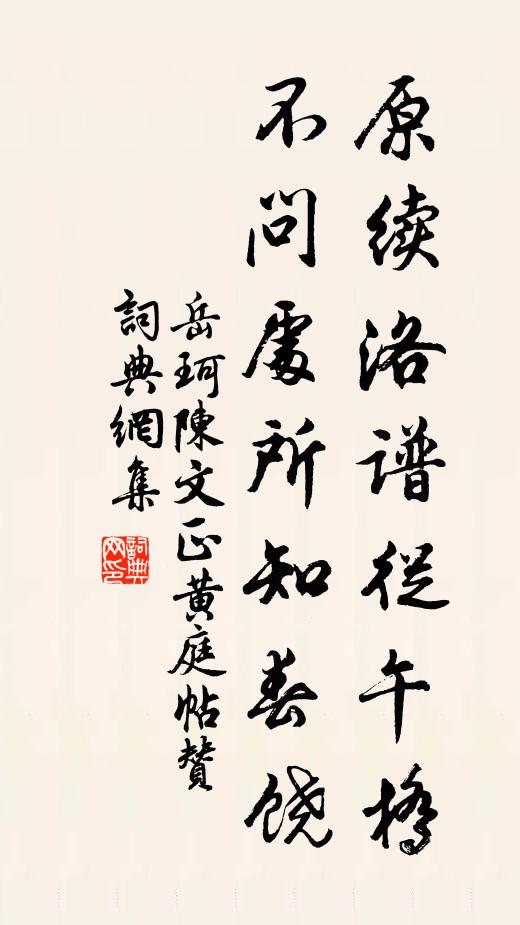 原续洛谱從午橋
不问處所知春饶
岳珂陳文正黄庭帖贊
詞典網集
詞典
网印